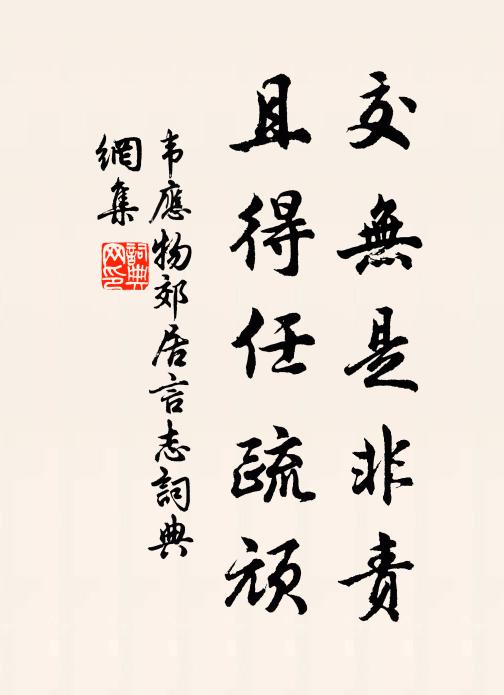 交無是非責
且得任疏頑
韦應物郊居言志詞典
網集
詞典网印